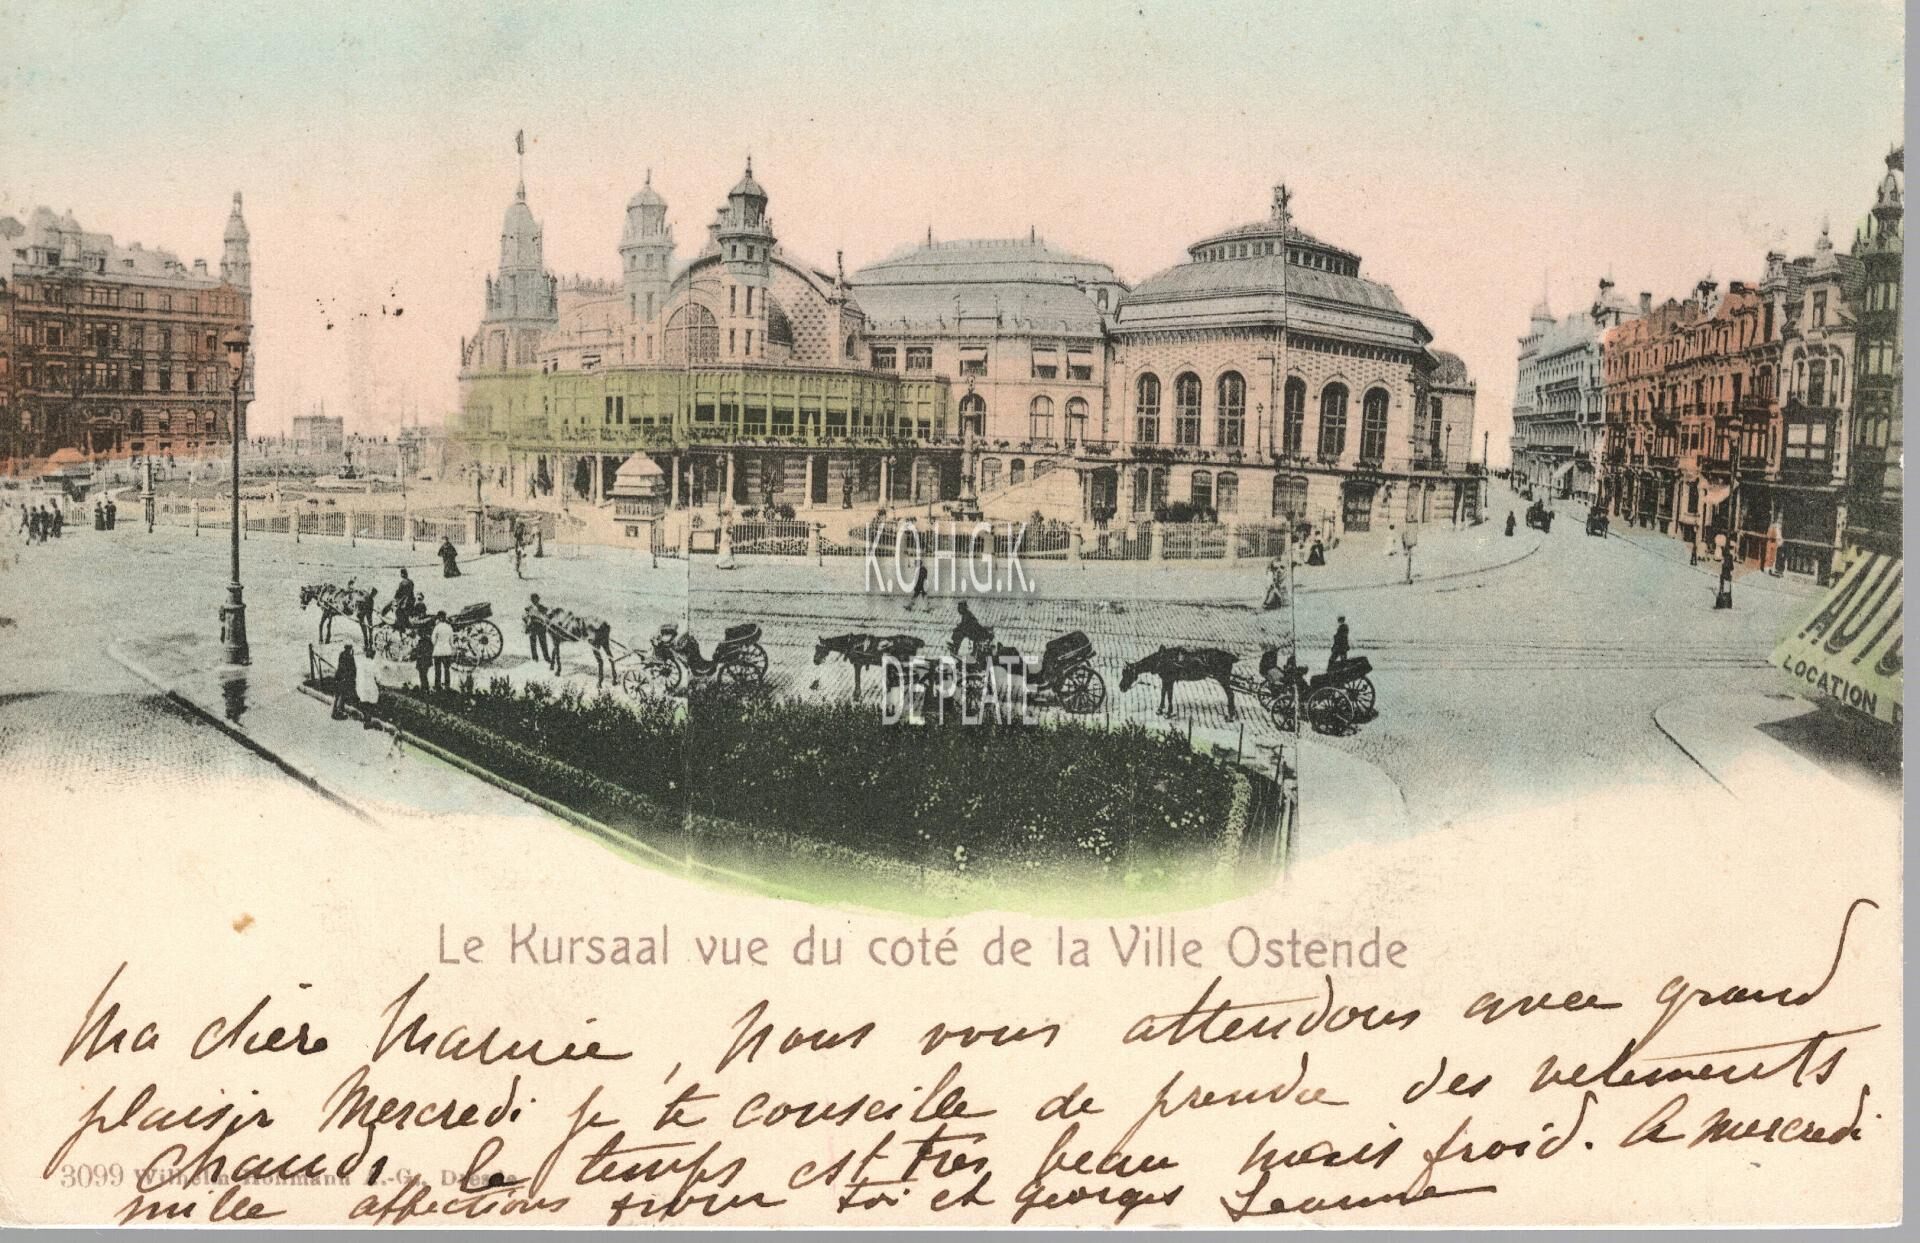 K.O.H.G.K.
DE PLATE
LOCATION
Le Kursaal vue du coté de la Ville Ostende
Ma chère Marnie, Nous vous attendons avec grand
plaisir Mercredi je te conseille de prendre des vetements
chauds le temps est très beau mais froid. A Mercredi
3099 Wilhelm Hoffmann A.-G., Dresden
mille affections pour toi et Georges Jeanne